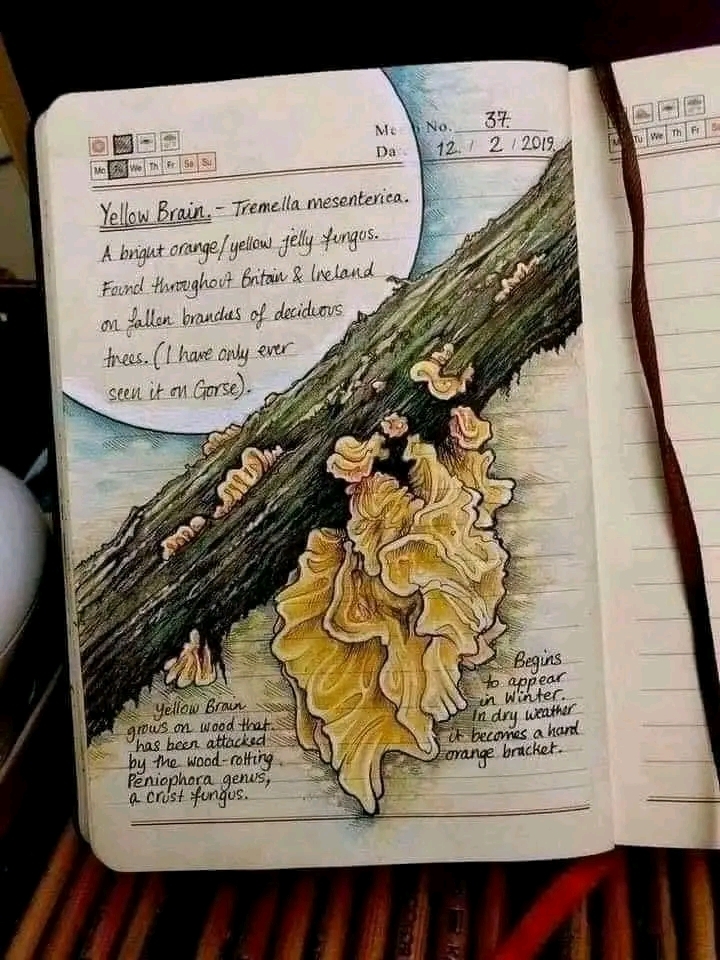 Me o No. 37.
Da : 12. / 2 / 2019.
Mo We Th Fr Sa Su
Yellow Brain. - Tremella mesenterica.
A bright orange/yellow jelly fungus.
Found throughout Britain & Ireland
on fallen branches of deciduous
trees. (I have only ever
seen it on Gorse).
Begins
to appear
in Winter.
In dry weather
it becomes a hard
orange bracket.
Yellow Brain
grows on wood that
has been attacked
by the wood-rotting
Peniophora genus,
a crust fungus.
Tu We Th Fr